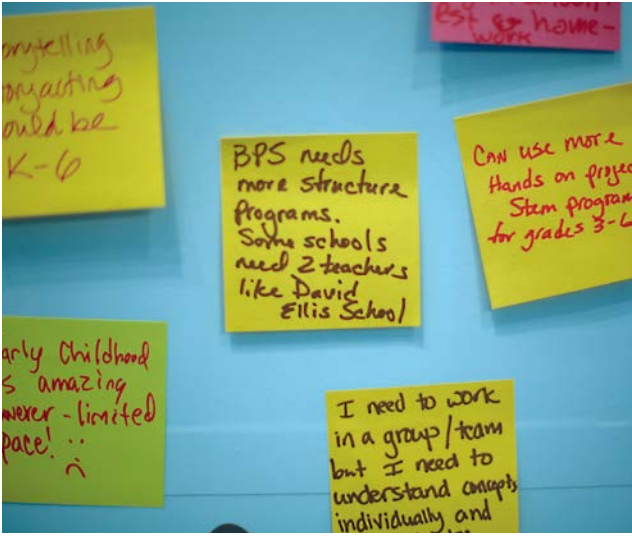 est & home-
work
orytelling
oryacting
ould be
K-6
BPS needs
more structure
Programs.
Some schools
need 2 teachers
like David
Ellis School
CAN use more
Hands on projec
Stem program
for grades 3-6
arly Childhood
s amazing
wever - limited
pace! :(
I need to work
in a group/team
but I need to
understand concepts
individually and